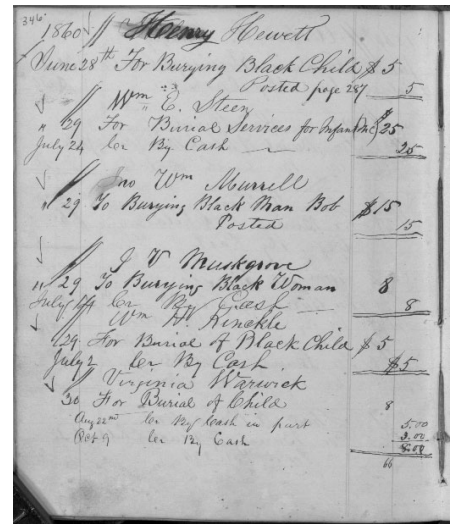 346
1860 Henry Hewett
June 28th For Burying Black Child $ 5
Posted page 287 5
Wm E. Steen
" 29 For Burial Services for Infant $25
July 24 Cr By Cash 25
Jno Wm Murrell
" 29 To Burying Black Man Bob $15
Posted 15
J W Muskgrove
" 29 To Burying Black Woman 8
July Cr By Cash 8
Wm H. Kinckle
" 29 For Burial of Black Child $ 5
July 2 Cr By Cash $5
Virginia Warwick
" 30 For Burial of Child 8
Aug 22nd Cr By Cash in part 5.00
Oct 9 Cr By Cash 3.00
8.00
66